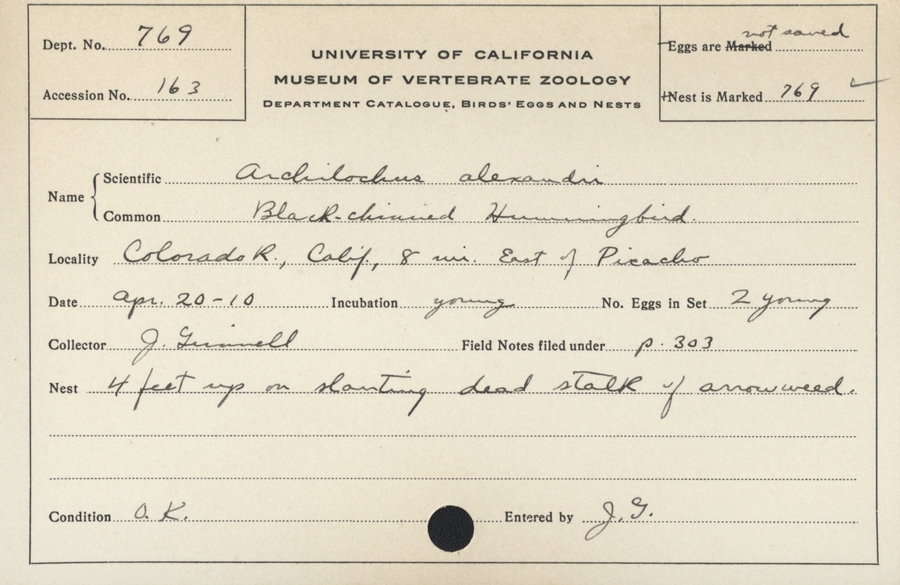 Dept. No. 769
Accession No. 163
UNIVERSITY OF CALIFORNIA
MUSEUM OF VERTEBRATE ZOOLOGY
DEPARTMENT CATALOGUE, BIRDS' EGGS AND NESTS
not saved
Eggs are Marked
Nest is Marked 769 ✓
Name
Scientific Archilochus alexandri
Common Black-chinned Hummingbird.
Locality Colorado R., Calif., 8 mi. East of Picacho
Date Apr. 20-10 Incubation young No. Eggs in Set 2 young
Collector J. Grinnell Field Notes filed under p. 303
Nest 4 feet up on slanting dead stalk of arrowweed.
Condition O.K. Entered by J.G.